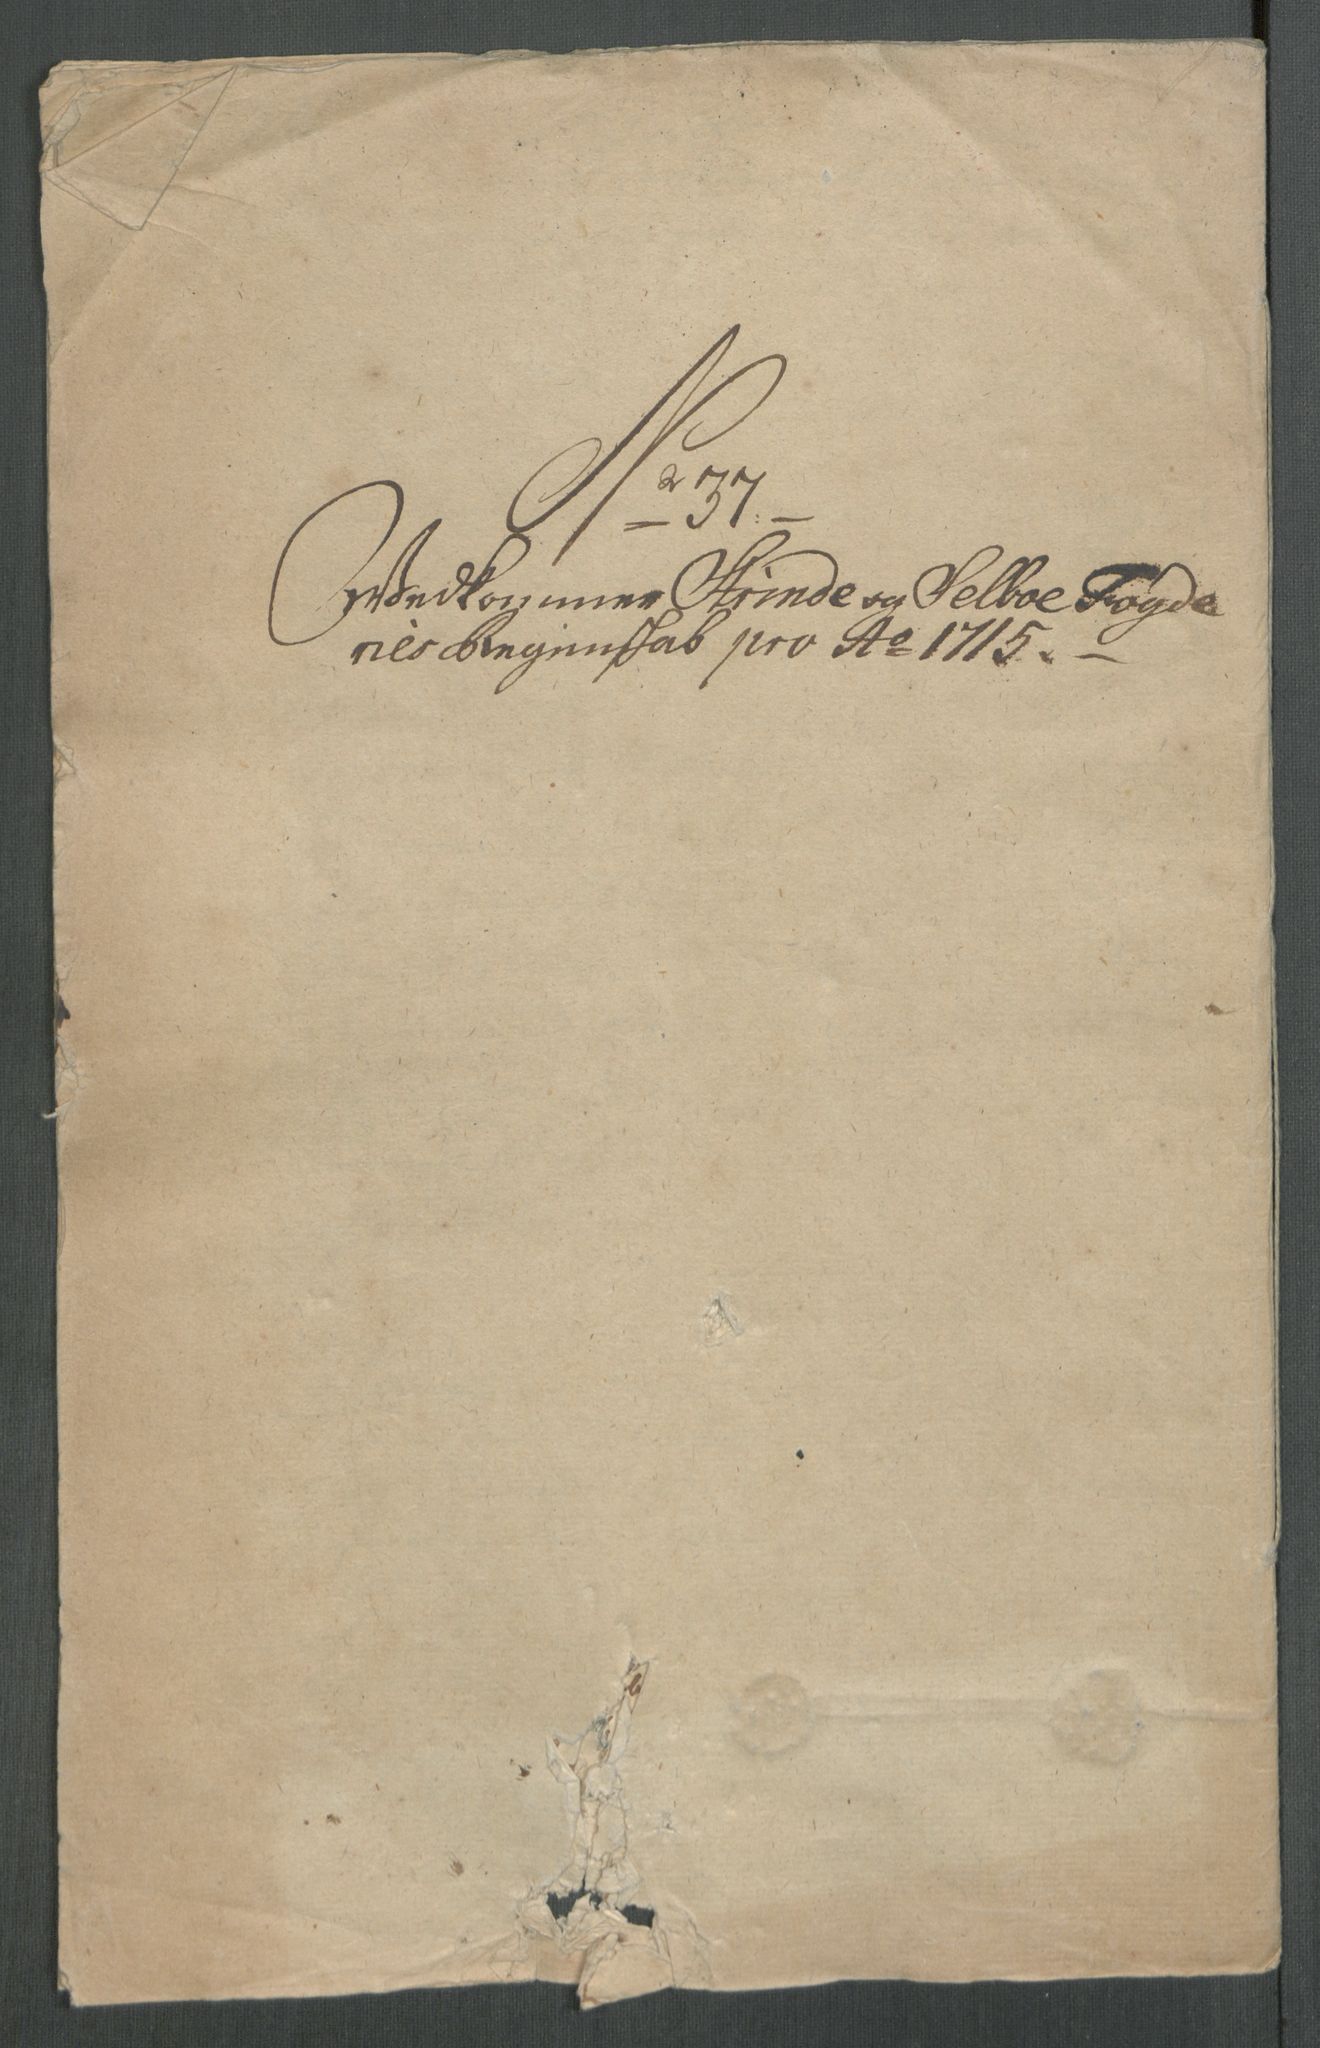 No 37.
Vedkommer Strinde og Selboe Fogde
ries Regenskab pro Ao 1715.